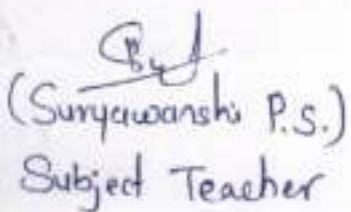 (Suryawanshi P.S.)
Subject Teacher